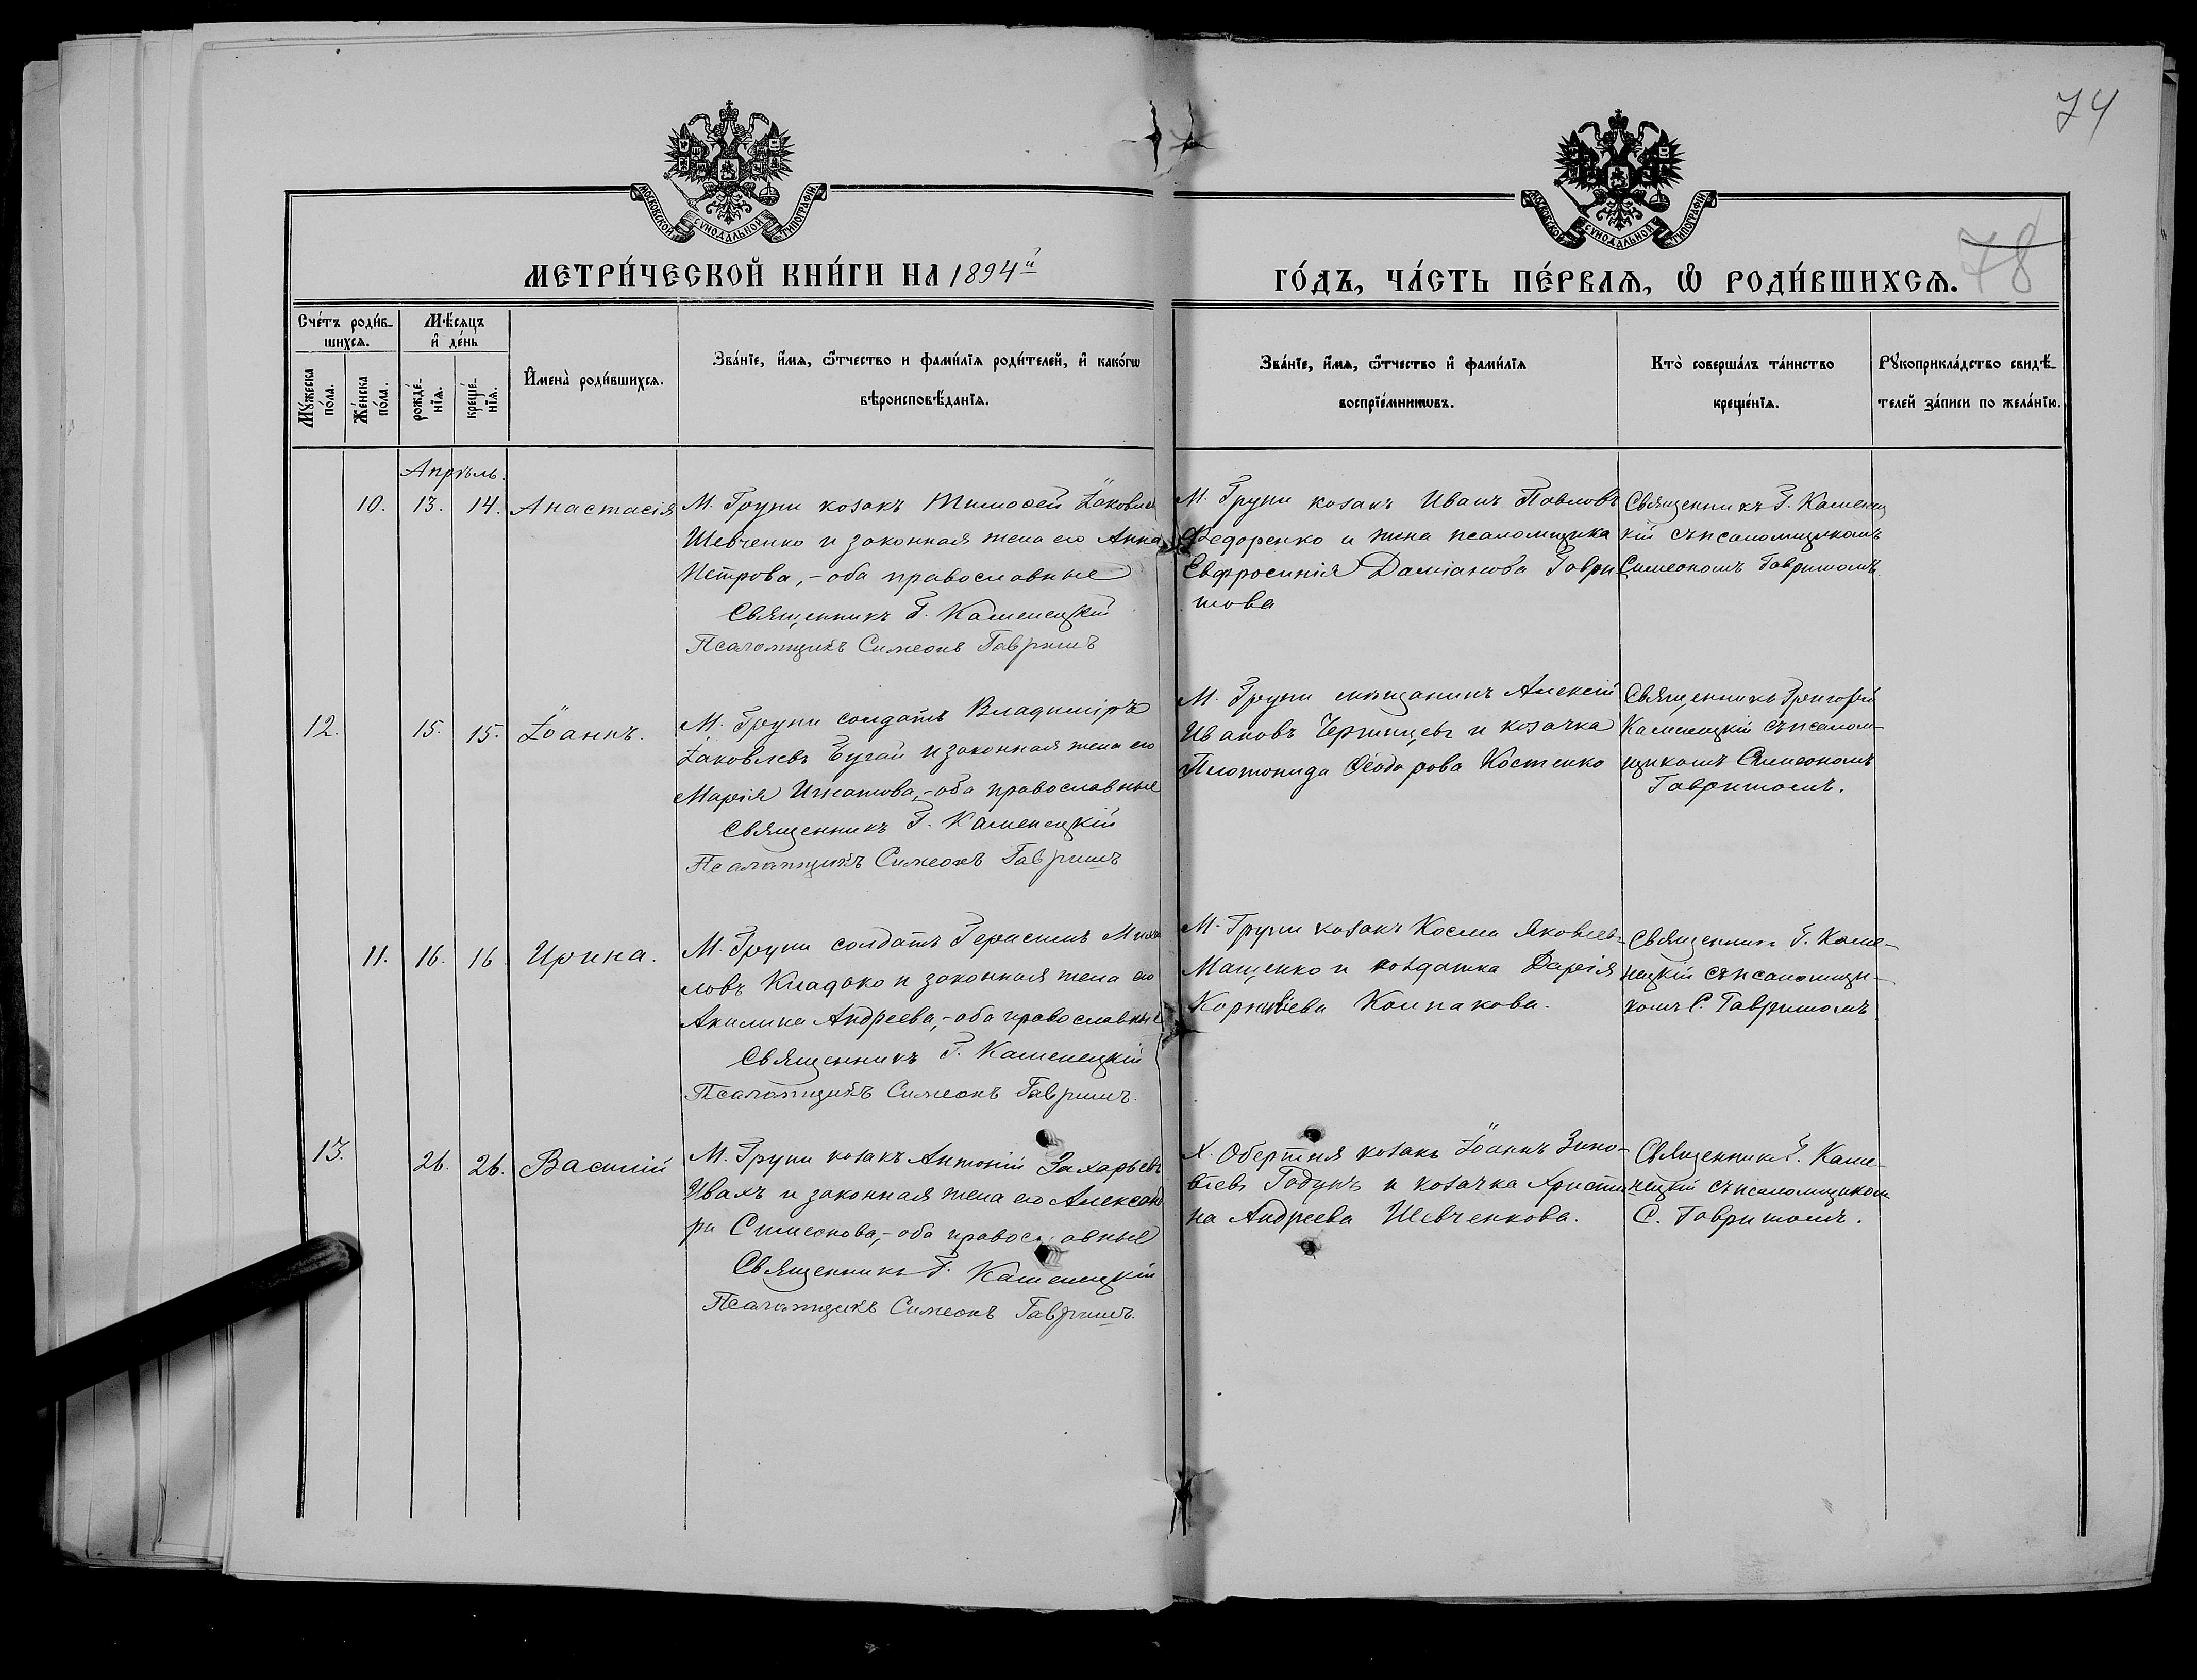 74
78
МОСКОВСКОЙ СУНОДАЛЬНОЙ ТИПОГРАФІИ
МОСКОВСКОЙ СУНОДАЛЬНОЙ ТИПОГРАФІИ
МЕТРИ́ЧЕСКОЙ КНИ́ГИ НА 1894й
ГО́ДЪ, ЧА́СТЬ ПЕ́РВАѦ, Ѡ҆ РОДИ́ВШИХСѦ.
Сче́тъ роди́в-
шихсѧ.
Мꙋ́жеска
по́ла.
Же́нска
по́ла.
Мѣ́сѧцъ
и҆ де́нь
рожде́-
нїѧ.
креще́-
нїѧ.
И҆мена̀ роди́вшихсѧ.
Зва́нїе, и҆́мѧ, ѻ҆́тчество и фами́лїѧ роди́телей, и҆ како́гѡ
вѣроисповѣ́данїѧ.
Зва́нїе, и҆́мѧ, ѻ҆́тчество и҆ фами́лїѧ
воспрїе́мникѡвъ.
Кто̀ соверша́лъ та́инство
креще́нїѧ.
Рꙋкоприкла́дство свидѣ́-
телей за́писи по жела́нїю.
Апрѣль.
10. 13. 14. Анастасія
М. Груни козакъ Тимоѳей Іаковлев
Шевченко и законная жена его Анна
Петрова,-оба православные
Священникъ Г. Каменецкій
Псаломщикъ Симеонъ Гавришъ
М. Груни козакъ Иванъ Павловъ
Федоренко и жена псаломщика
Евфросинія Даміанова Гаври
шова
Священникъ Г. Каменец
кій съ псаломщикомъ
Симеономъ Гавришомъ.
12. 15. 15. Іоаннъ.
М. Груни солдатъ Владиміръ
Іаковлевъ Бугай и законная жена его
Марія Игнатова,-оба православные
Священникъ Г. Каменецкій
Псаломщикъ Симеонъ Гавришъ
М. Груни мѣщанинъ Алексій
Ивановъ Чернищевъ и козачка
Платонида Ѳеодорова Костенко
Священникъ Григорій
Каменецкій съ псалом-
щикомъ Симеономъ
Гавришомъ.
11. 16. 16. Ирина.
М. Груни солдатъ Герасимъ Михаи
ловъ Кладоко и законная жена его
Акилина Андреева,-оба православные
Священникъ Г. Каменецкій
Псаломщикъ Симеонъ Гавришъ.
М. Груни козакъ Косма Яковлев-
Мащенко и солдатка Дарія
Корниліева Колпакова.
Священникъ Г. Каме-
нецкій съ псаломщи-
комъ С. Гавришомъ
13. 26. 26. Василій
М. Груни козакъ Антоній Захарьевъ
Ивахъ и законная жена его Александ
ра Симеонова,-оба православные
Священникъ Г. Каменецкій
Псаломщикъ Симеонъ Гавришъ.
Х. Обертня козакъ Іоаннъ Зино-
віевъ Годунъ и козачка Христи
на Андреева Шевченкова.
Священникъ Г. Каме-
нецкій съ псаломщиком
С. Гавришомъ.